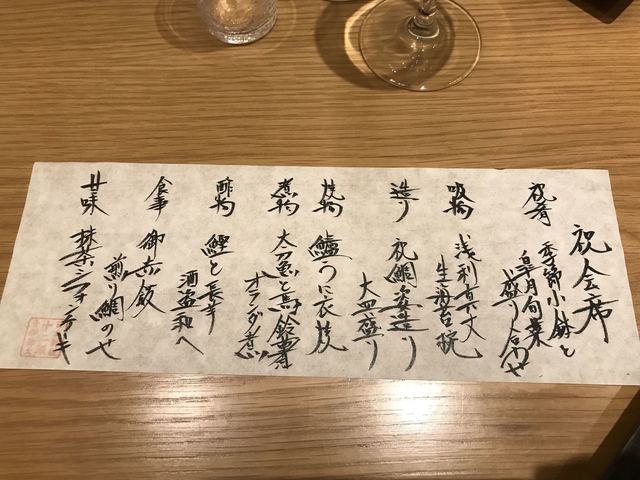 祝会席
祝肴 季節小鉢と
皐月旬菜
盛り合わせ
吸物 浅利真丈
生海苔椀
造り 祝鯛姿造り
大皿盛り
焼物 鱸うに衣焼
煮物 太刀魚と馬鈴薯
オランダ煮
酢物 鰹と長芋
酒盗和へ
食事 御赤飯
煎り鯛のせ
甘味 抹茶シフォンケーキ